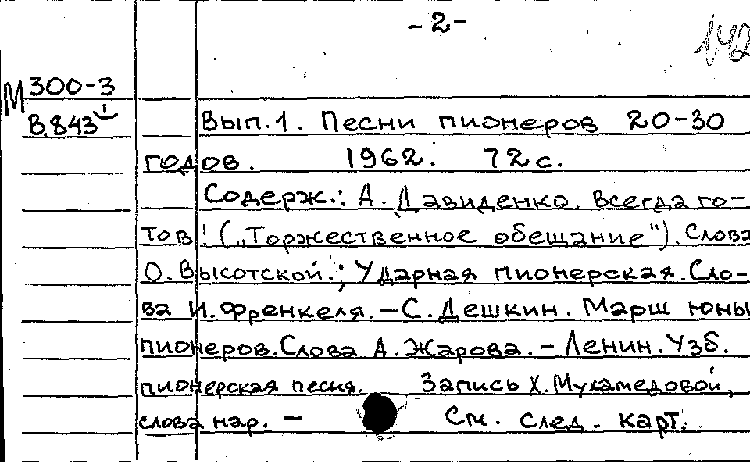 - 2 -
142
М 300-3
В.843
Вып.1. Песни пионеров 20-30
годов. 1962. 72 с.
Содерж.: А. Давиденко. Всегда го-
тов! („Торжественное обещание"). Слова
О. Высотской.; Ударная пионерская. Сло-
ва И. Френкеля. – С. Дешкин. Марш юны
пионеров. Слова А. Жарова. – Ленин. Узб.
пионерская песня. Запись Х. Мухамедовой,
слова нар. – См. след. карт.